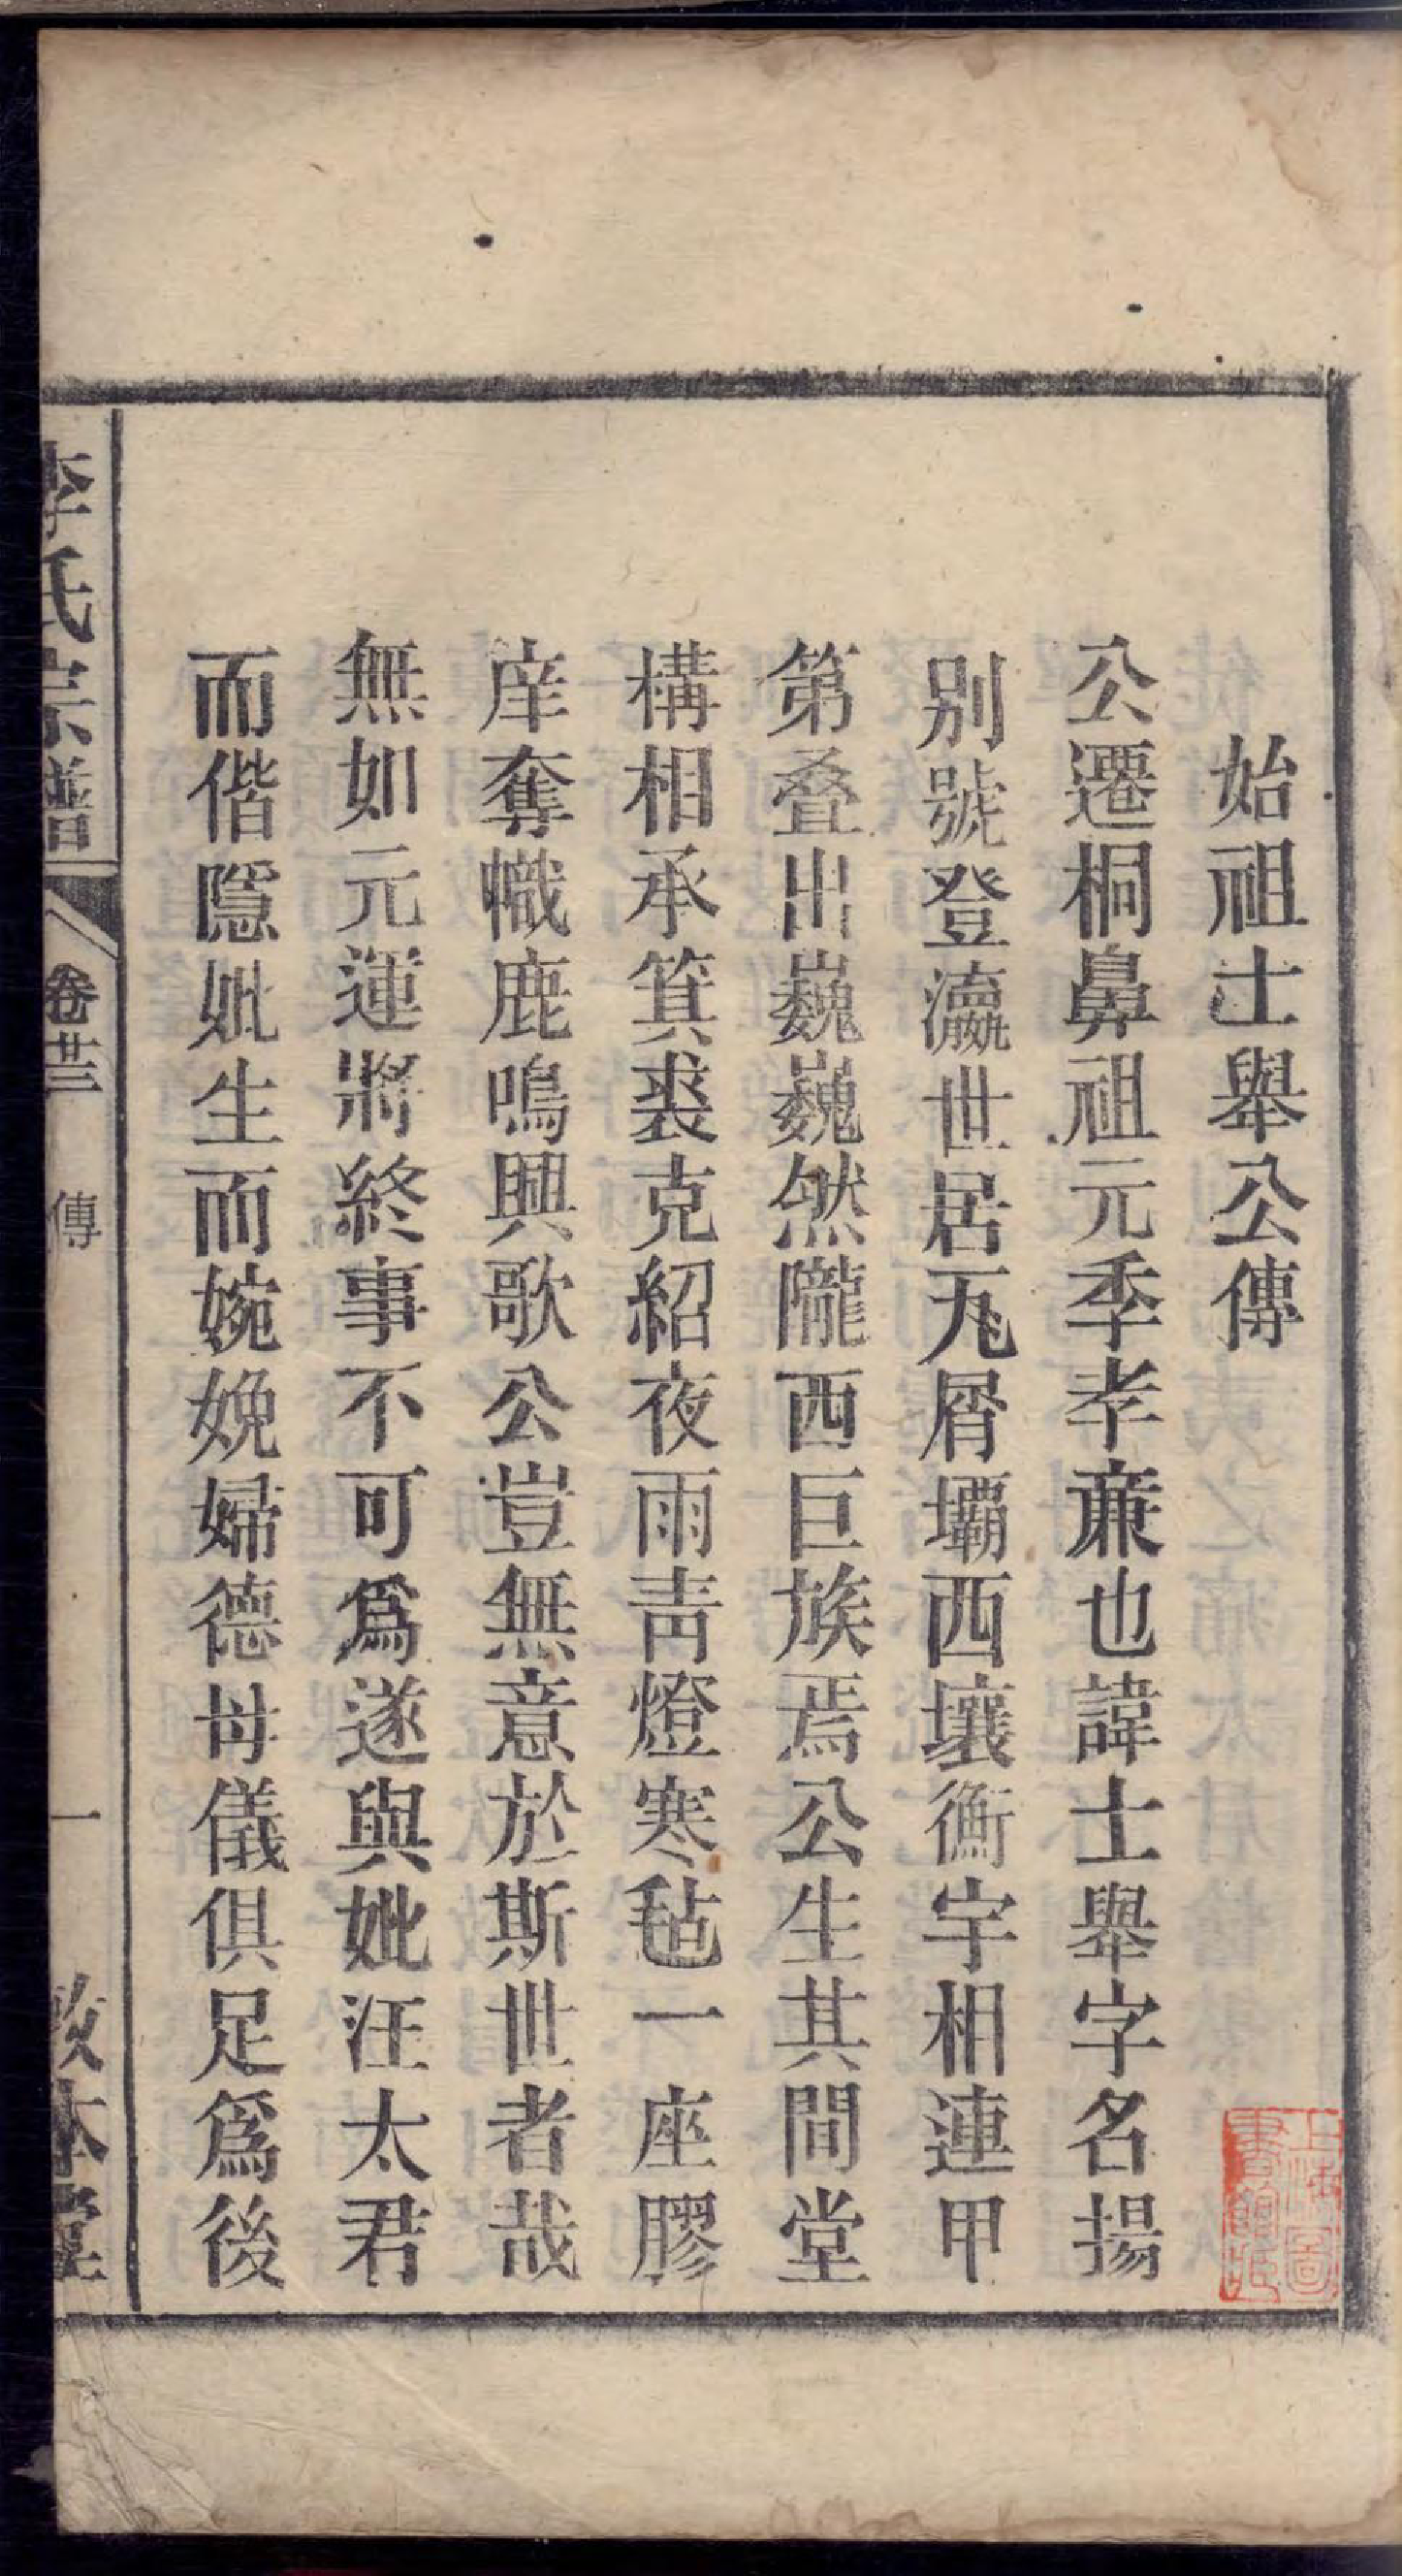 始祖士舉公傳
公遷桐鼻祖元季孝亷也諱士舉字名揚
別號登瀛世居瓦屑壩西壤衡宇相連甲
第叠出巍巍然隴西巨族焉公生其間堂
構相承箕裘克紹夜雨靑燈寒毡一座膠
庠奪幟鹿鳴興歌公豈無意於斯世者哉
無如元運將終事不可爲遂與妣汪太君
而偕隱妣生而婉娩婦德母儀俱足爲後
李氏宗譜 卷廿三 傳 一 敦本堂
上海圖書館藏